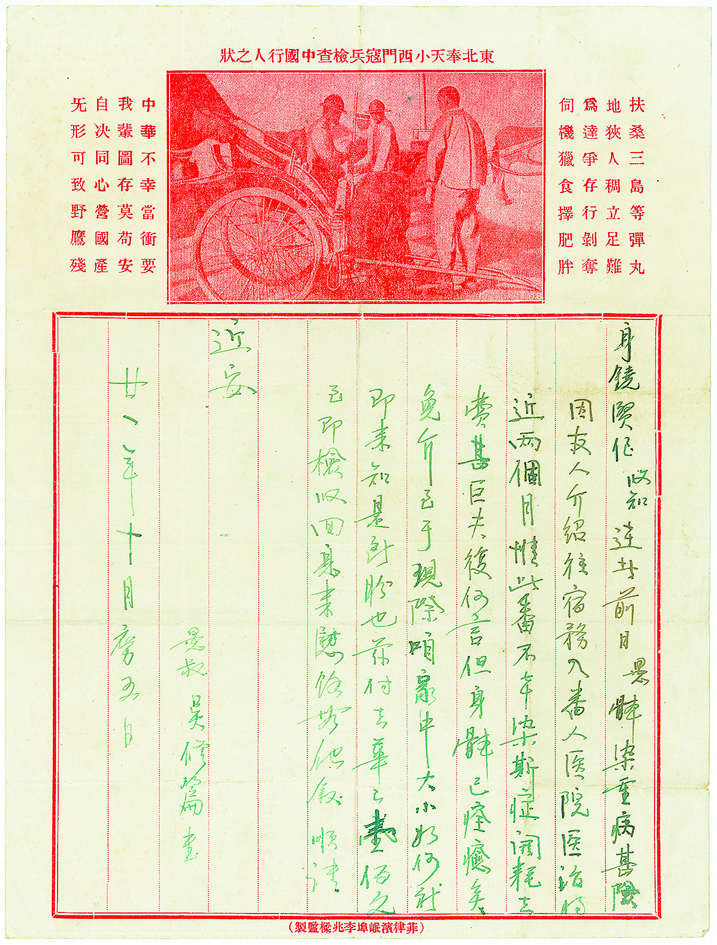 東北奉天小西門寇兵檢查中國行人之狀
扶桑三島等彈丸
地狹人稠立足難
爲達爭存行剝奪
伺機獵食擇肥胖
中華不幸當衝要
我輩圖存莫苟安
自决同心營國產
旡形可致野鷹殘
身鏡賢侄 收知 前日愚體染重病甚險
因友人介紹往宿務入番人医院医治將
近兩個月惟此番不幸染斯症耗去
費甚巨夫復何言但身體已痊癒矣
免介至于現際咱家中大小如何祈
即来知是所盼也茲付去華壹佰元
至即檢收回息来慰餘容後敘順請
近安
愚叔 吳修篇書
年十月日
(菲律濱岷埠李兆樑監製)